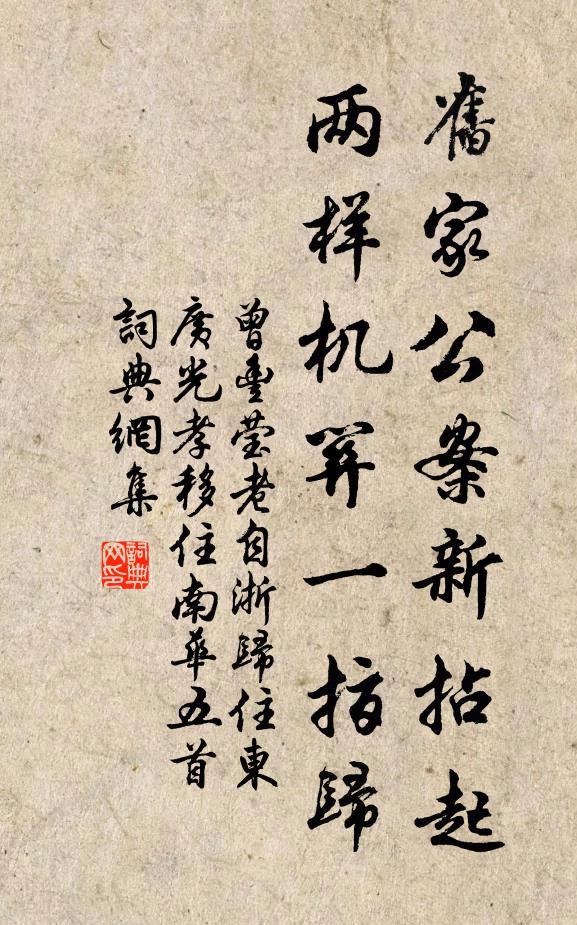 舊家公案新拈起
两样机筭一指歸
曾豐莹老自浙歸住東
廣光孝移住南華五首
詞典網集
詞典
网印